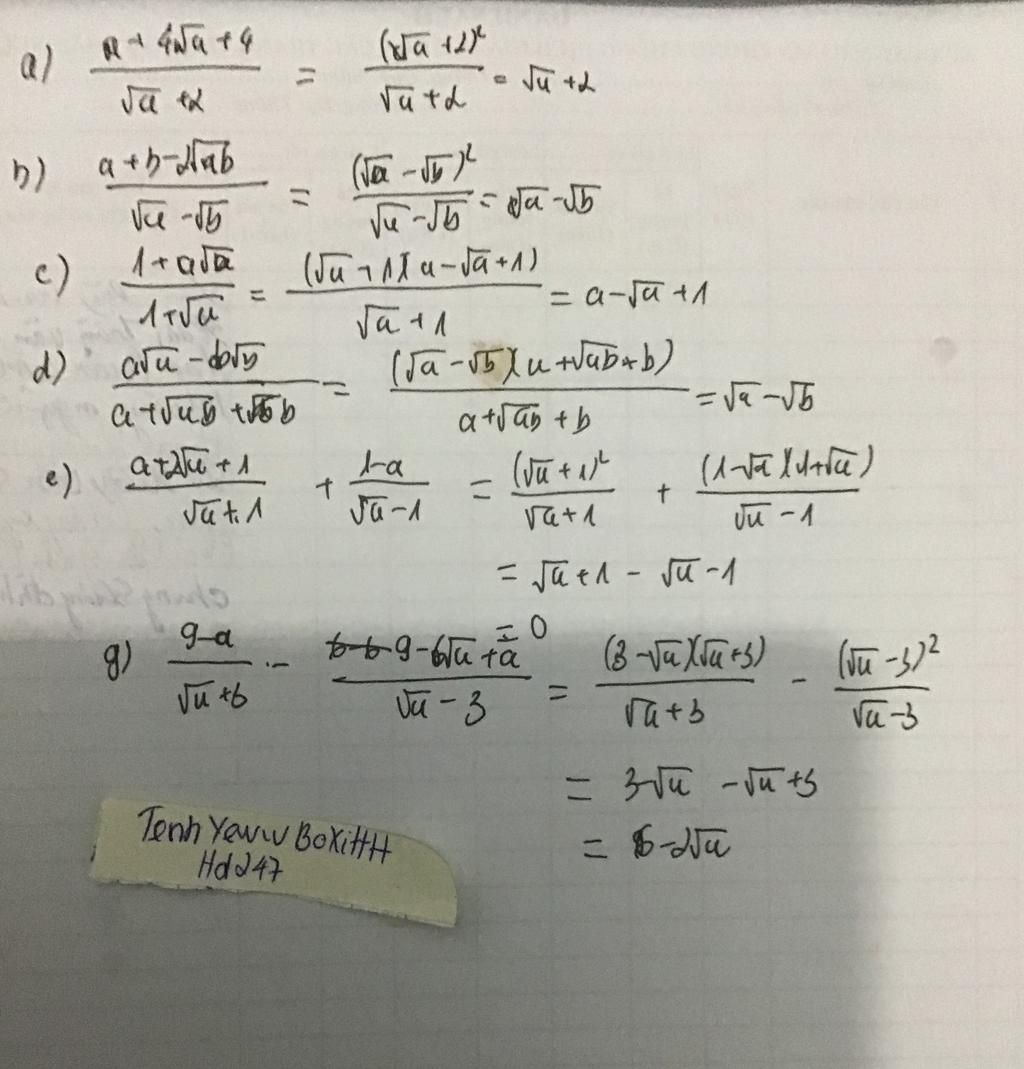 a) (a + 4√a + 4)/(√a + 2) = (√a + 2)²/(√a + 2) = √a + 2
b) (a + b - 2√ab)/(√a - √b) = (√a - √b)²/(√a - √b) = √a - √b
c) (1 + a√a)/(1 + √a) = (√a + 1)(a - √a + 1)/(√a + 1) = a - √a + 1
d) (a√a - b√b)/(a + √ab + b) = (√a - √b)(a + √ab + b)/(a + √ab + b) = √a - √b
e) (a + 2√a + 1)/(√a + 1) + (1 - a)/(√a - 1) = (√a + 1)²/(√a + 1) + (1 - √a)(1 + √a)/(√a - 1)
= √a + 1 - √a - 1
= 0
g) (9 - a)/(√a + 3) - (9 - 6√a + a)/(√a - 3) = (3 - √a)(√a + 3)/(√a + 3) - (√a - 3)²/(√a - 3)
= 3 - √a - √a + 3
= 6 - 2√a
Hd247